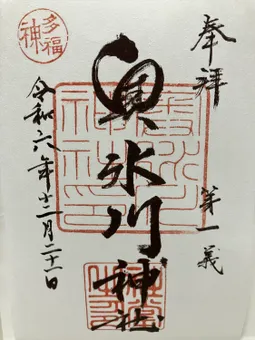 奉拝
第一義
奥氷川神社
多福神
令和六年十二月二十一日